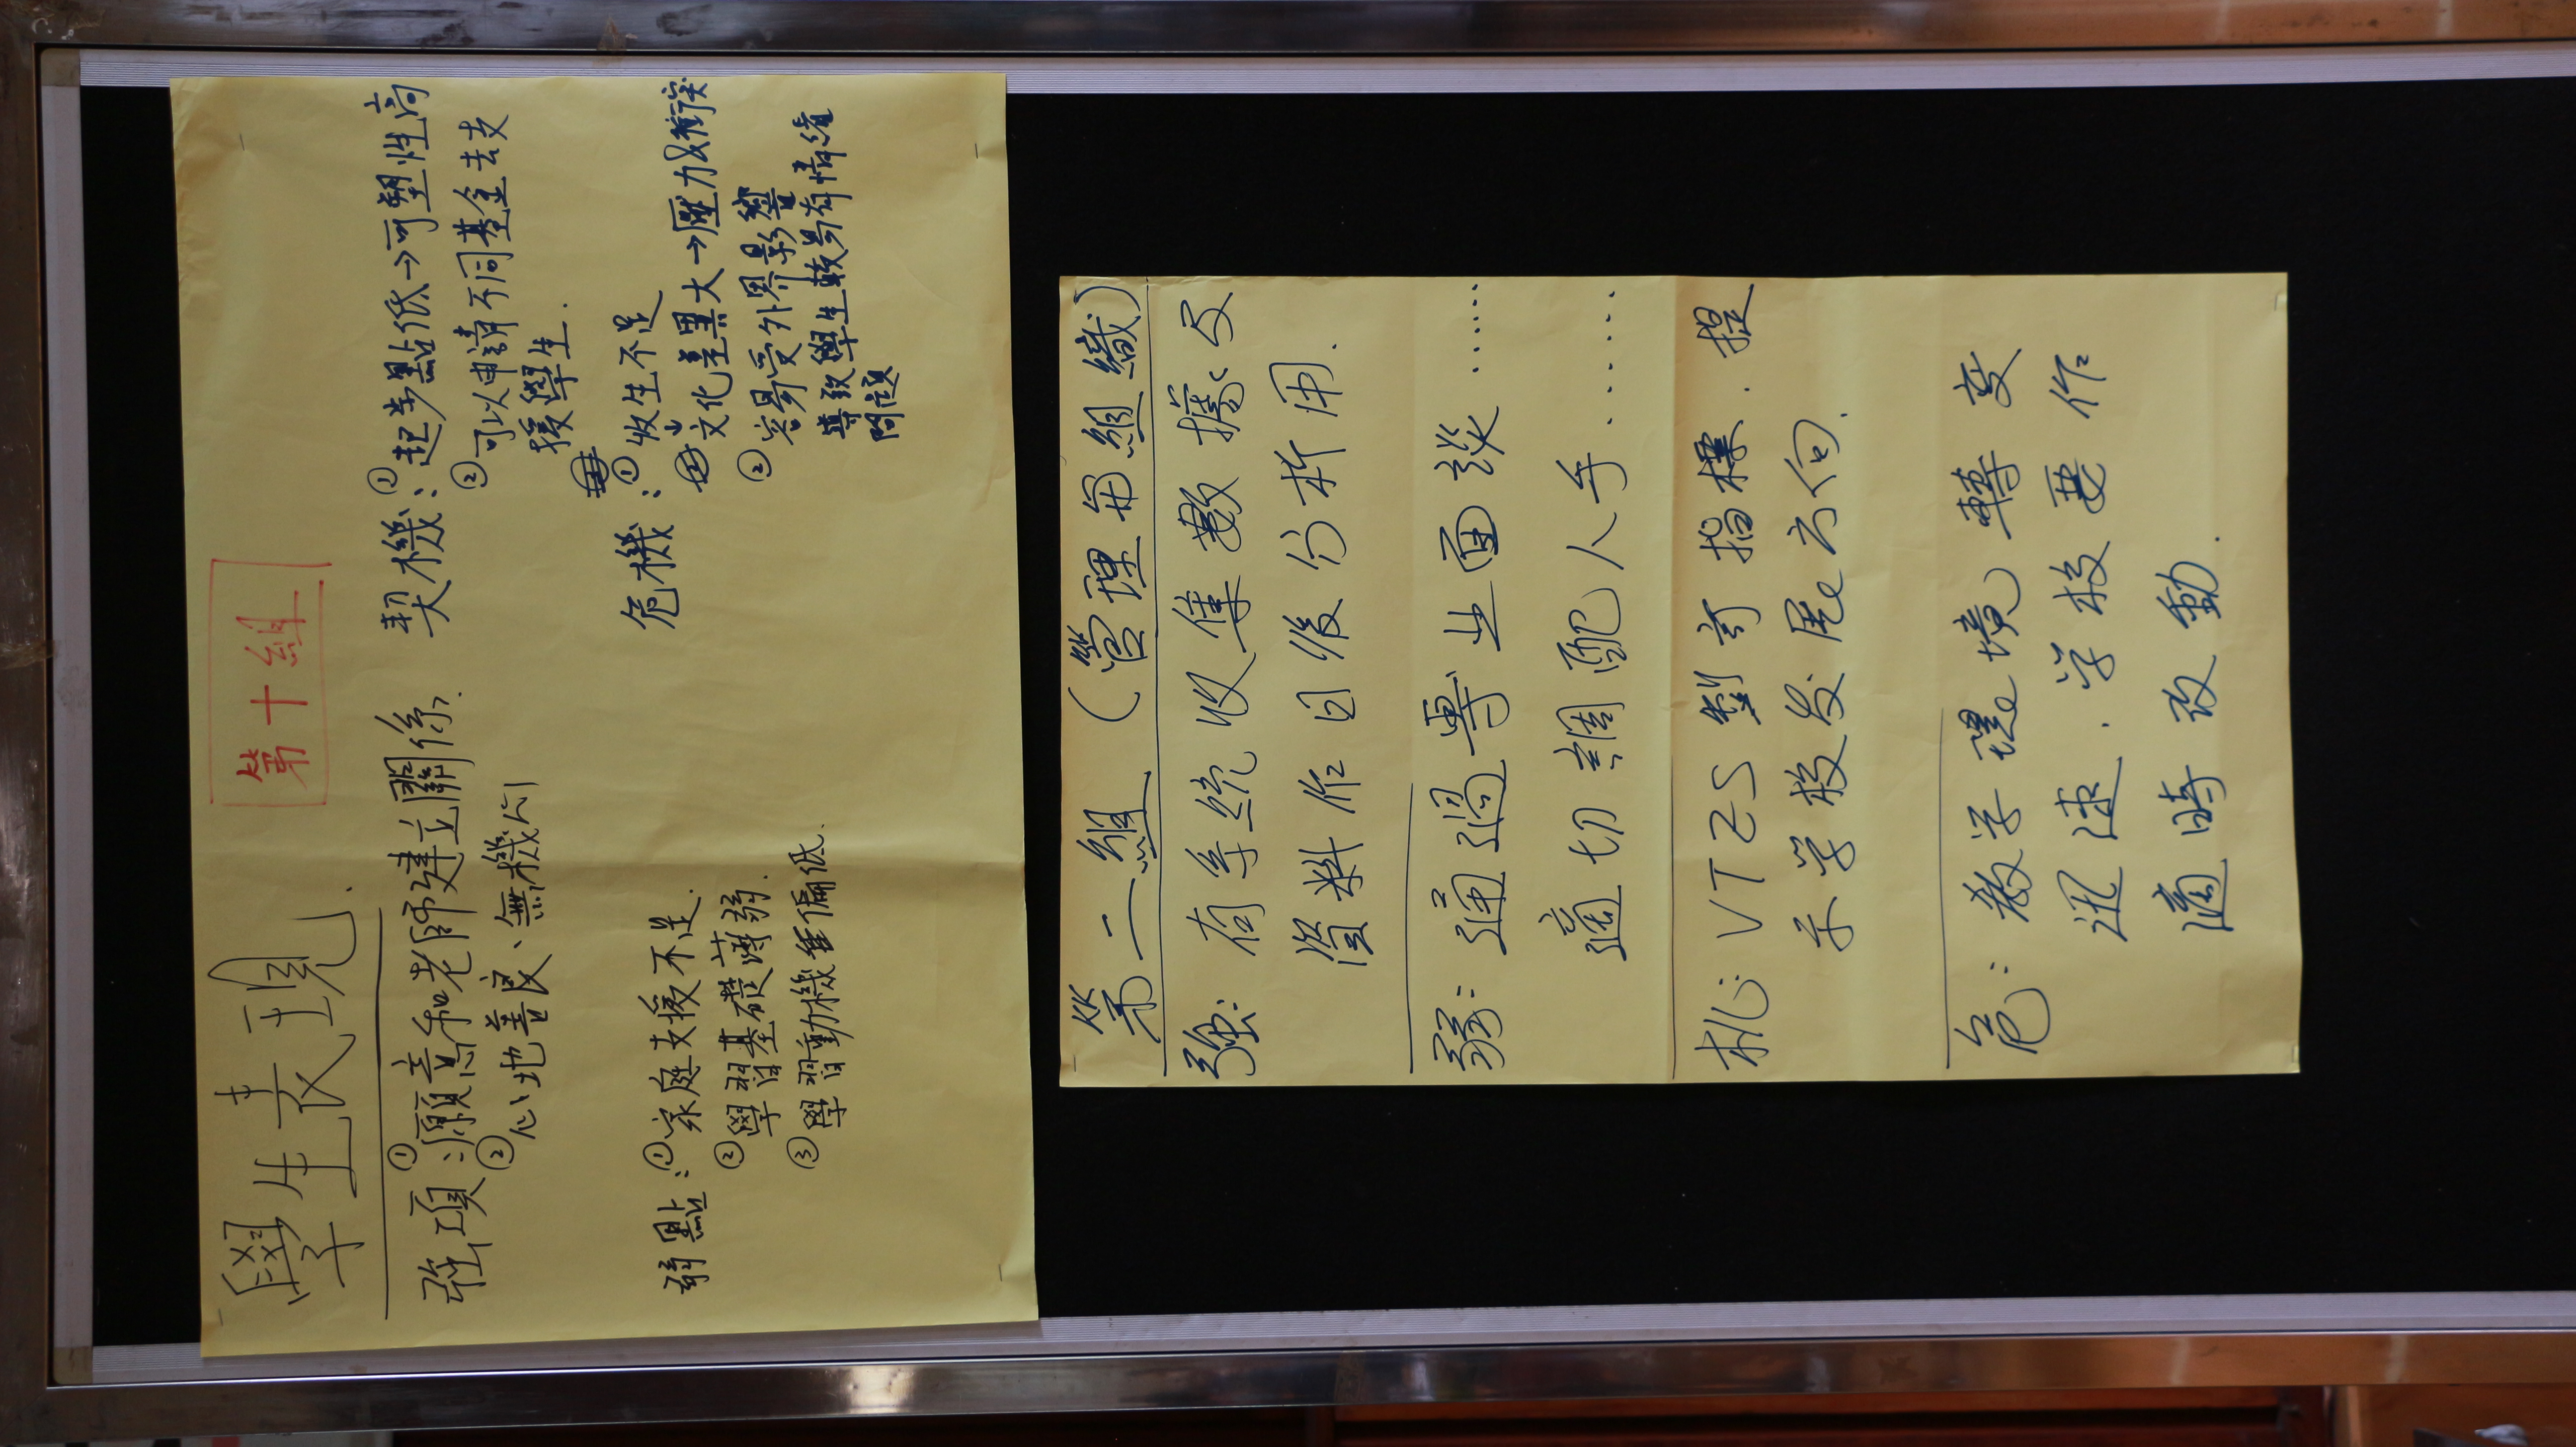 學生表現.
第十組
強項:①願意和老師建立關係.
②心地善良、無機心
弱點:①家庭支援不足.
②學習基礎薄弱.
③學習動機偏低.
契機:①起步點低→可塑性高
②可以申請不同基金去支
援學生.
危機:①收生不足
文化差異大→壓力&衝突
②容易受外界影響
導致學生較易有情緒
問題
第二組 (管理與組織)
強: 有系統收集數據及
資料作日後分析用.
弱: 通過專业面談......
適切調配人手.......
机: VTZS 對訂指標.提
示学校发展方向.
危: 教学環境轉变
迅速.学校要作
適時改動.